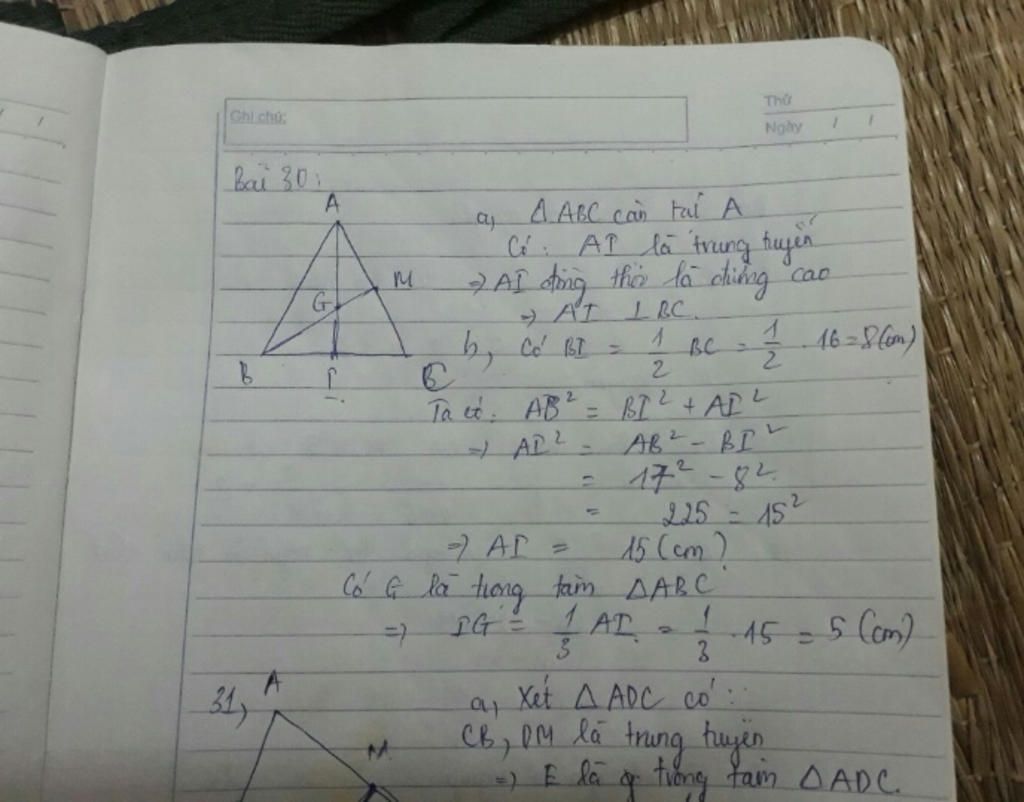 Ghi chú:
Thứ
Ngày / /
Bài 30:
A
M
G
B
I
C
a, Δ ABC cân tại A
Có: AI là trung tuyến
⇒ AI đồng thời là đường cao
⇒ AI ⊥ BC.
b, Có BI = 1/2 BC = 1/2 . 16 = 8 (cm)
Ta có: AB² = BI² + AI²
⇒ AI² = AB² - BI²
= 17² - 8²
= 225 = 15²
⇒ AI = 15 (cm)
Có G là trong tâm ΔABC
⇒ IG = 1/3 AI = 1/3 . 15 = 5 (cm)
31,
A
M
a, Xét Δ ADC có:
CB, DM là trung tuyến
⇒ E là trong tâm Δ ADC.